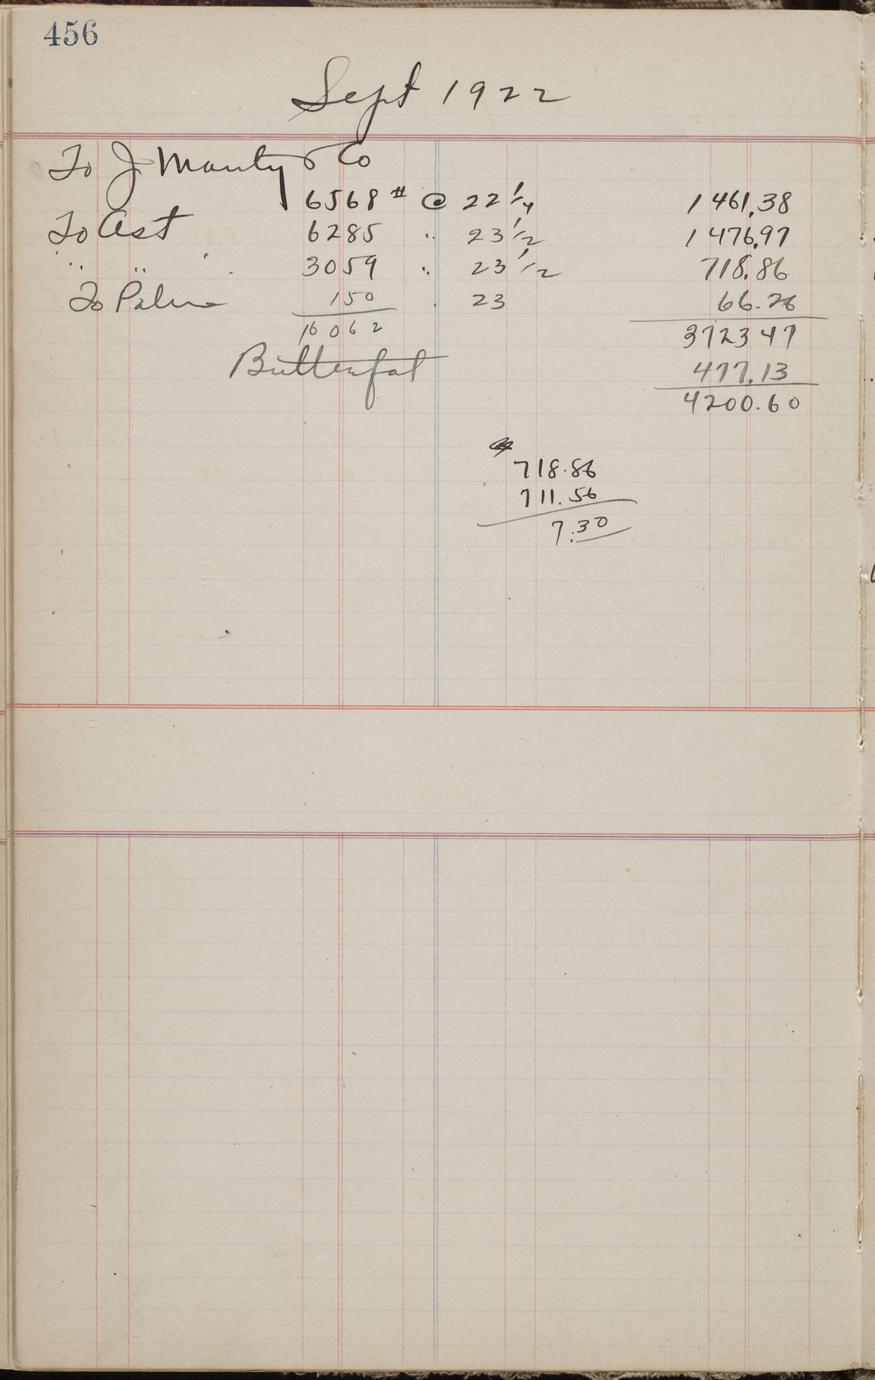 456
Sept 1922
To J. Manty & Co
6568 # @ 22 1/4 1461.38
To Ast 6285 " 23 1/2 1476.97
" " " 3059 " 23 1/2 718.86
To 150 " 23 66.26
16062 3723 47
Butterfat 477.13
4200.60
718.86
711.56
7.30